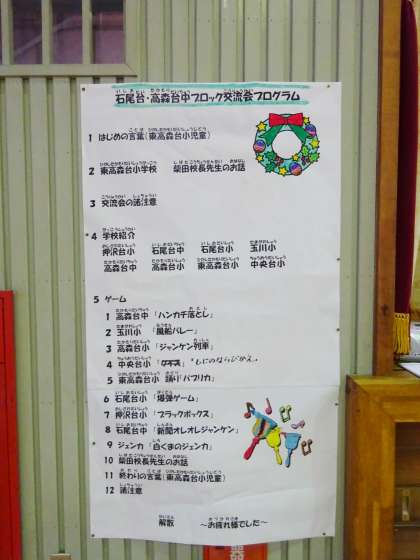 石尾台・高森台中ブロック交流会プログラム
1 はじめの言葉（東高森台小児童）
2 東高森台小学校 柴田校長先生のお話
3 交流会の諸注意
4 学校紹介
押沢台小 石尾台中 石尾台小 玉川小
高森台中 高森台小 東高森台小 中央台小
5 ゲーム
1 高森台中「ハンカチ落とし」
2 玉川小「風船バレー」
3 高森台小「ジャンケン列車」
4 中央台小 もじのならびかえ
5 東高森台小 踊り「パプリカ」
6 石尾台小「爆弾ゲーム」
7 押沢台小「ブラックボックス」
8 石尾台中「新聞オレオレジャンケン」
9 ジェンカ「白くまのジェンカ」
10 柴田校長先生のお話
11 終わりの言葉（東高森台小児童）
12 諸注意
解散 ～お疲れ様でした～